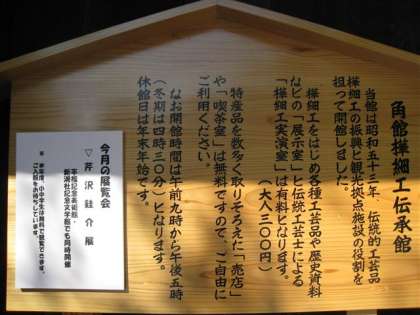 角館樺細工伝承館
当館は昭和五十三年、伝統的工芸品
樺細工の振興と観光拠点施設の役割を
担って開館しました。
樺細工をはじめ各種工芸品や歴史資料
などの「展示室」と伝統工芸士による
「樺細工実演室」は有料となります。
(大人三〇〇円)
特産品を数多く取りそろえた「売店」
や「喫茶室」は無料ですので、ご自由に
ご利用ください。
なお開館時間は午前九時から午後五時
(冬期は四時三〇分)となります。
休館日は年末年始です。
今月の展覧会
▽芹沢銈介展
平福記念美術館・
新潮社記念文学館でも同時開催
※本年度、小中学生は無料で観覧できます。
ご入館をお待ちしています。